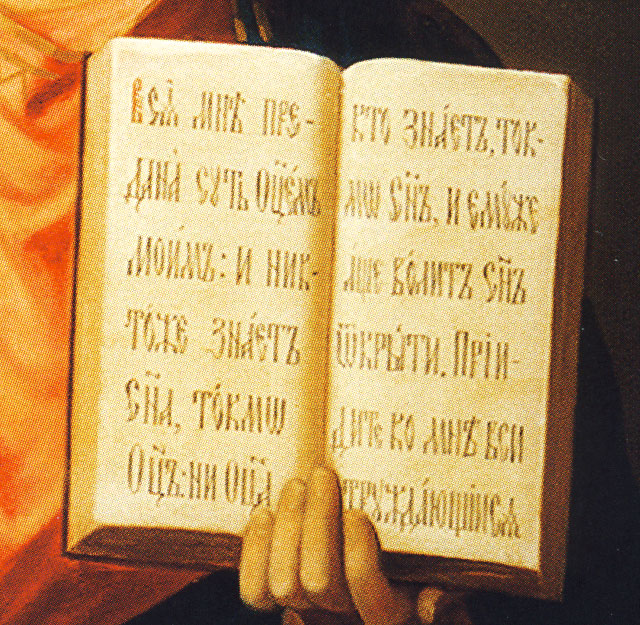 Всѧ̑ мнѣ̀ пре-
дана̀ сꙋть Ѻц҃е́мъ
мои́мъ: и ник-
то́же зна́етъ
Сн҃а, то́кмѡ
Оц҃ъ: ни Оц҃а
кто зна́етъ, ток-
мѡ Сн҃ъ, и емꙋ́же
а́ще во́литъ Сн҃ъ
ѿкры́ти. Прїи-
дите ко мнѣ вси
трꙋжда́ющїисѧ